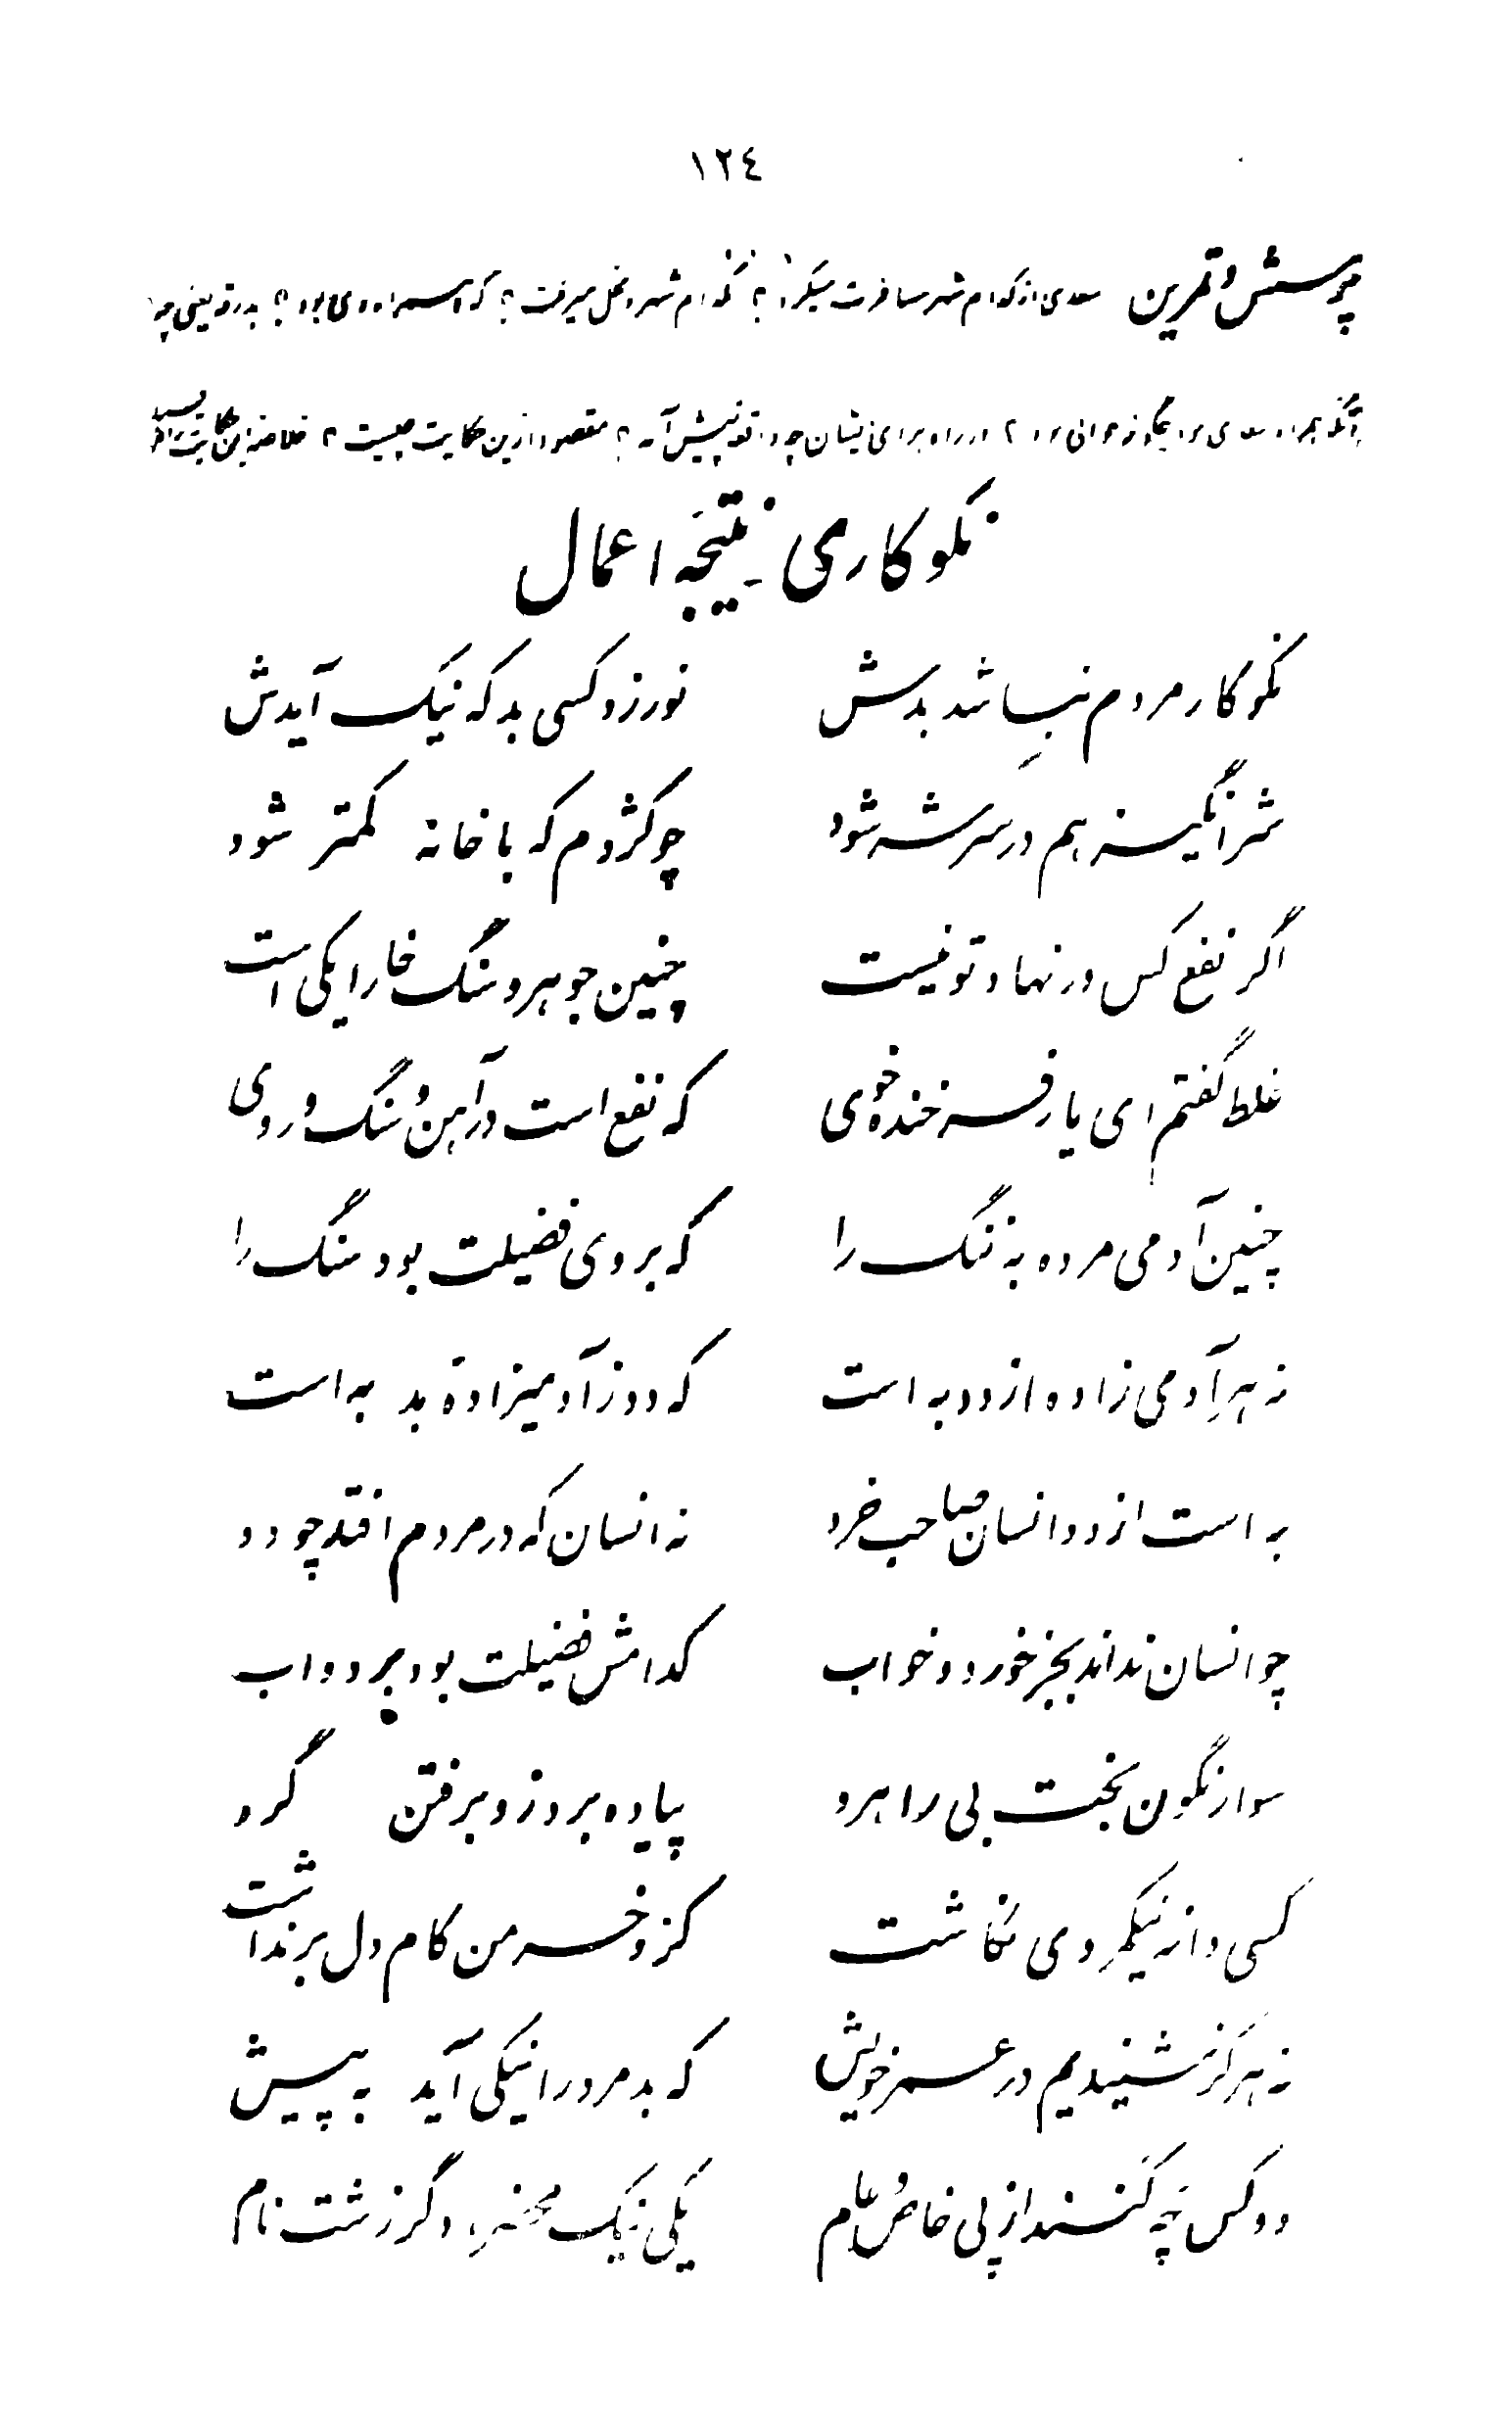 ١٢٤
پرسش و تمرین سعدی از کدام شهر مسافرت میکرد؟ بکدام شهر داخل میرفت؟ که همراه وی بود؟ بدرقه یعنی چه؟
آنکه همراه سعدی بود چگونه جوانی بود؟ در راه برای ایشان چه واقعه پیش آمد؟ مقصود ازین حکایت چیست؟ خلاصهٔ این حکایت را بنویسید
نکوکاری - نتیجهٔ اعمال
نکوکار مردم نباشد بدش نورزد کسی بد که نیک آیدش
شرانگیز هم در سر شر شود چو کژدم که با خانه کمتر شود
اگر نفع کس در نهاد تو نیست چنین جوهر و سنگ خارا یکی است
غلط گفتم ای یار فرخنده خوی که نفع است در آهن و سنگ و روی
چنین آدمی مرده به ننگ را که بر وی فضیلت بود سنگ را
نه هر آدمی زاده از دد به است که دد ز آدمیزادهٔ بد به است
به است از دد انسان صاحب خرد نه انسان که در مردم افتد چو دد
چو انسان نداند بجز خورد و خواب کدامش فضیلت بود بر دواب
سوار نگون بخت بی راه رو پیاده برد زو برفتن گرو
کسی دانه نیکمردی نکاشت کزو خرمن کام دل برنداشت
نه هرگز شنیدیم در عمر خویش که بد مرد را نیکی آید به پیش
دو کس چه کنند از پی خاص و عام یکی نیک محضر دگر زشت نام